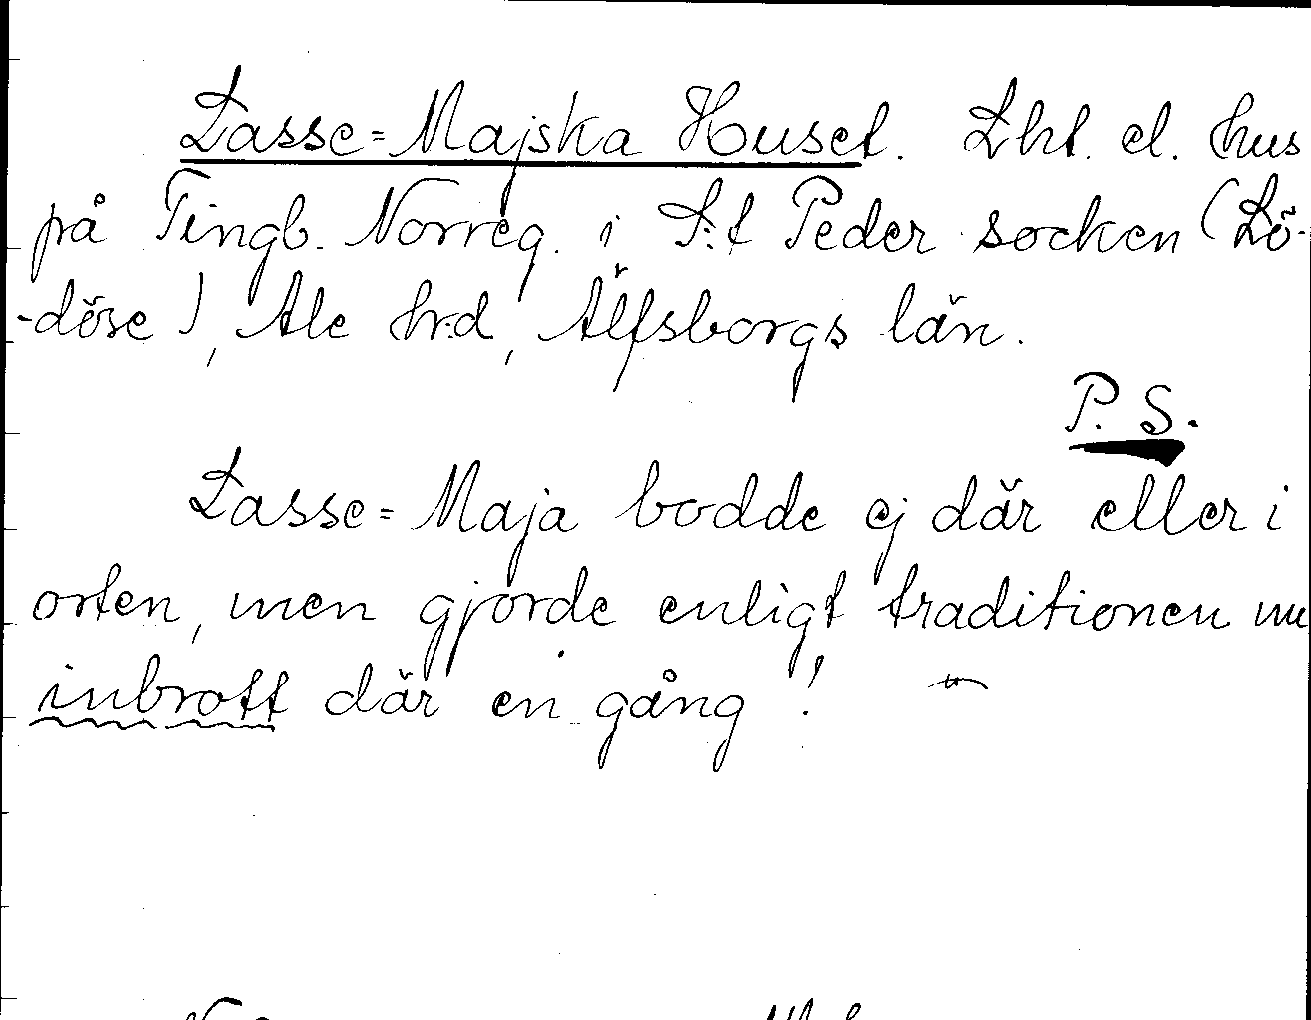 Lasse-Majska Huset. Lht. el. hus
på Tingb. Norreg. i S:t Peder socken (Lö-
-döse), Ale hrd, Älfsborgs län.
P. S.
Lasse-Maja bodde ej där eller i
orten, men gjorde enligt traditionen
inbrott där en gång!